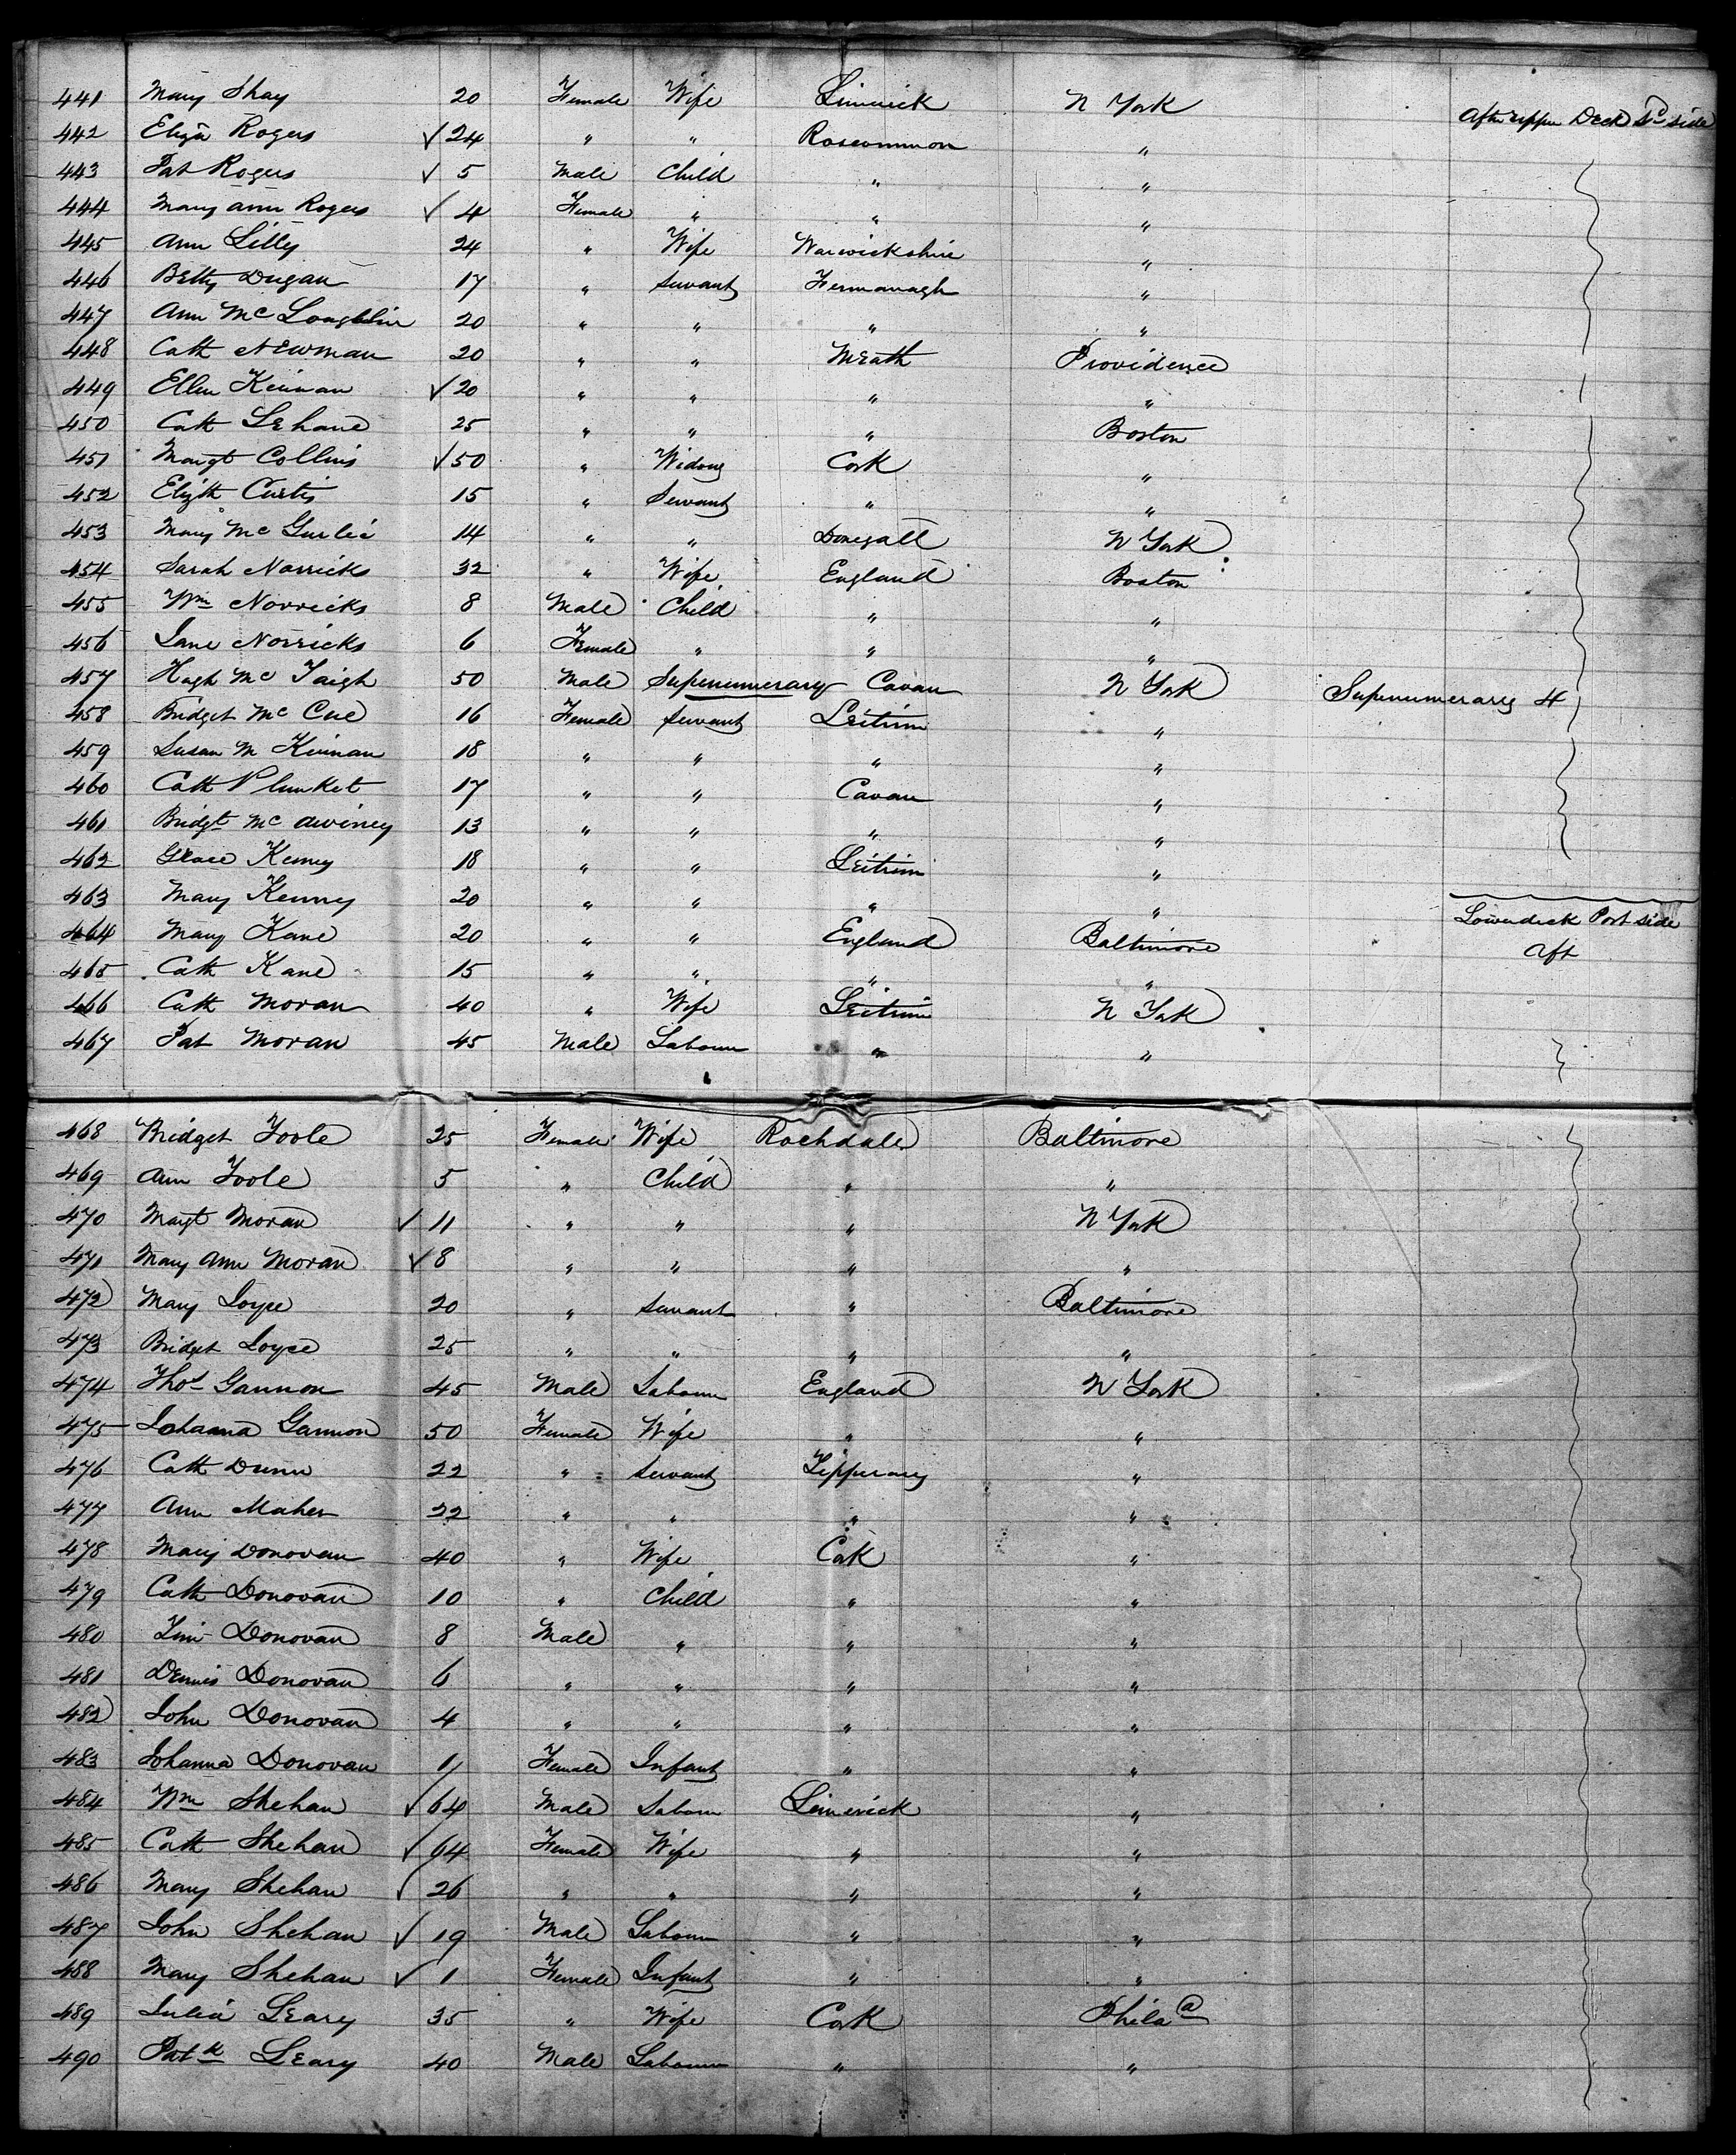 441 Mary Shay 20 Female Wife Limerick N York After upper Deck Sd side
442 Eliza Rogers ✓ 24 " " Roscommon "
443 Pat Rogers ✓ 5 Male Child " "
444 Mary Ann Rogers ✓ 4 Female " " "
445 Ann Lilly 24 " Wife Warwickshire "
446 Betty Dugan 17 " Servant Fermanagh "
447 Ann Mc Loughlin 20 " " " "
448 Cath Newman 20 " " Meath Providence
449 Ellen Keirnan ✓ 20 " " " "
450 Cath Lehane 25 " " " Boston
451 Margt Collins ✓ 50 " Widow Cork "
452 Elizth Curtis 15 " Servant " "
453 Mary Mc 14 " " Donegall N York
454 Sarah Norricks 32 " Wife England Boston
455 Wm Norricks 8 Male Child " "
456 Jane Norricks 6 Female " " "
457 Hugh Mc Taigh 50 Male Supernumerary Cavan N York Supernumerary 4
458 Bridget Mc Cue 16 Female Servant Leitrim "
459 Susan M Kiernan 18 " " " "
460 Cath Plunket 17 " " Cavan "
461 Bridgt Mc Awiney 13 " " " "
462 Grace Kenny 18 " " Leitrim "
463 Mary Kenny 20 " " " "
464 Mary Kane 20 " " England Baltimore Lowerdeck Port side
465 Cath Kane 15 " " " " Aft
466 Cath Moran 40 " Wife Leitrim N York
467 Pat Moran 45 Male Labourer " "
468 Bridget Toole 25 Female Wife Rochdale Baltimore
469 Ann Toole 5 " Child " "
470 Margt Moran ✓ 11 " " " N York
471 Mary Ann Moran ✓ 8 " " " "
472 Mary Joyce 20 " Servant " Baltimore
473 Bridget Joyce 25 " " " "
474 Thos Gannon 45 Male Labourer England N York
475 Johanna Gannon 50 Female Wife " "
476 Cath Dunn 22 " Servant Tipperary "
477 Ann Maher 22 " " " "
478 Mary Donovan 40 " Wife Cork "
479 Cath Donovan 10 " Child " "
480 Tim Donovan 8 Male " " "
481 Dennis Donovan 6 " " " "
482 John Donovan 4 " " " "
483 Johanna Donovan 1 Female Infant " "
484 Wm Shehan ✓ 64 Male Labourer Limerick "
485 Cath Shehan ✓ 64 Female Wife " "
486 Mary Shehan ✓ 26 " " " "
487 John Shehan ✓ 19 Male Labourer " "
488 Mary Shehan ✓ 1 Female Infant " "
489 Julia Leary 35 " Wife Cork Phila
490 Patk Leary 40 Male Labourer " "